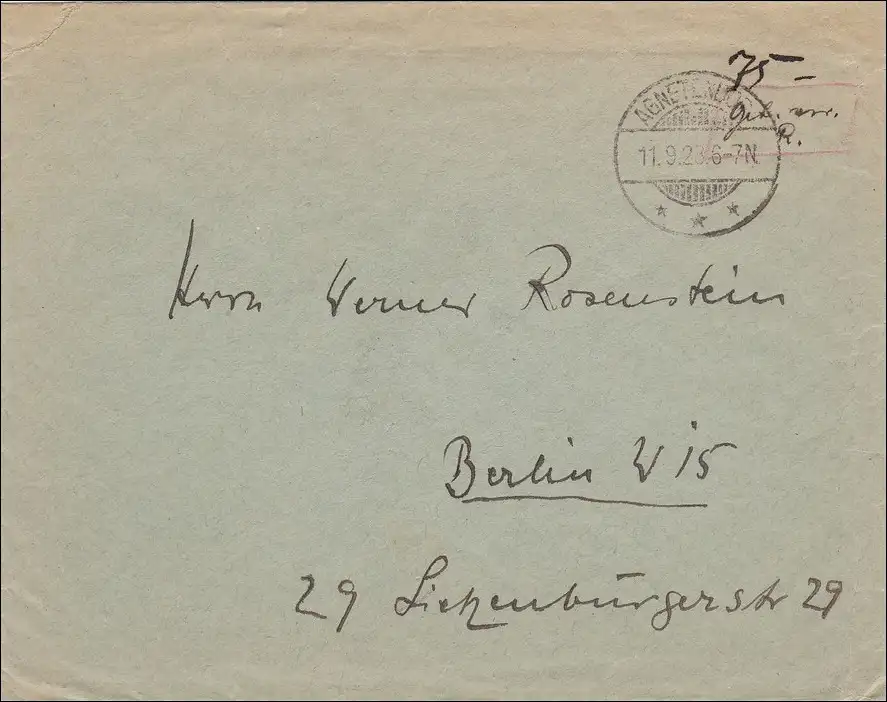 75 –
AGNETENDORF
Geb. 
R.
11.9.23.6-7N.
Herrn Werner Rosenstein
Berlin W 15
29 Lietzenburgerstr 29